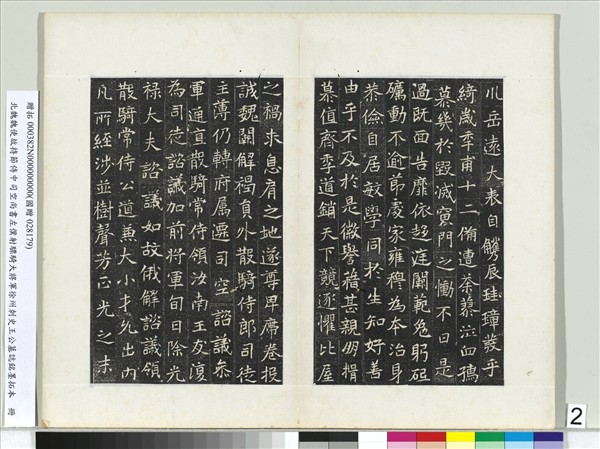 川岳遠大表自觹辰珪璋發乎
綺歲年甫十二備遭荼蓼泣血孺
慕幾於毀滅裏門之慟不日是
過既面告靡依超泣闈範兔躬砥
礪動不逾節處家雍穆為本治身
恭儉自居敏學同於生知好善
由乎不及於是徽譽藉甚親朋揖
慕值齊季道銷天下競逐懼比屋
之禍求息肩之地遂尊卑席卷投
誠魏闕解褐員外散騎侍郎司徒
主薄仍轉府屬遷司空諮議參
軍通直散騎常侍領汝南王友復
為司徒諮議加前將軍旬日除光
祿大夫諮議如故俄解諮議領
散騎常侍公道兼大小才允出內
凡所經涉並樹聲芳正光之末
贈拓 000382N000000000(國贈 028179)
北魏魏使故持節侍中司空尚書左僕射驃騎大將軍徐州刺史王公墓誌銘墨拓本 冊
2